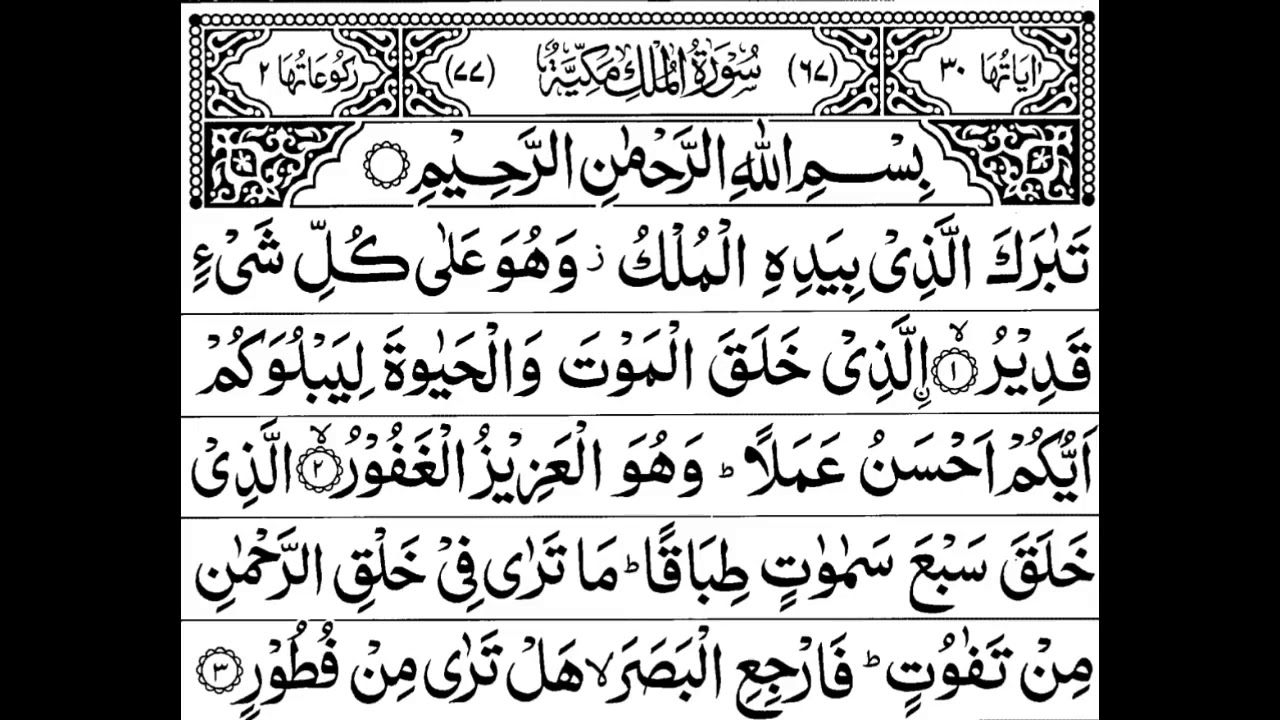 اٰيَاتُهَا ٣٠ (٦٧) سُوْرَةُ الْمُلْكِ مَكِّيَّةٌ (٧٧) رُكُوْعَاتُهَا ٢
بِسْمِ اللّٰهِ الرَّحْمٰنِ الرَّحِيْمِ ۝
تَبٰرَكَ الَّذِىْ بِيَدِهِ الْمُلْكُ ز وَهُوَ عَلٰى كُلِّ شَىْءٍ
قَدِيْرُ ۙ﴿١﴾ اۨلَّذِىْ خَلَقَ الْمَوْتَ وَالْحَيٰوةَ لِيَبْلُوَكُمْ
اَيُّكُمْ اَحْسَنُ عَمَلًا ؕ وَهُوَ الْعَزِيْزُ الْغَفُوْرُ ۙ﴿٢﴾ الَّذِىْ
خَلَقَ سَبْعَ سَمٰوٰتٍ طِبَاقًا ؕ مَا تَرٰى فِىْ خَلْقِ الرَّحْمٰنِ
مِنْ تَفٰوُتٍ ؕ فَارْجِعِ الْبَصَرَ ۙ هَلْ تَرٰى مِنْ فُطُوْرٍ ﴿٣﴾